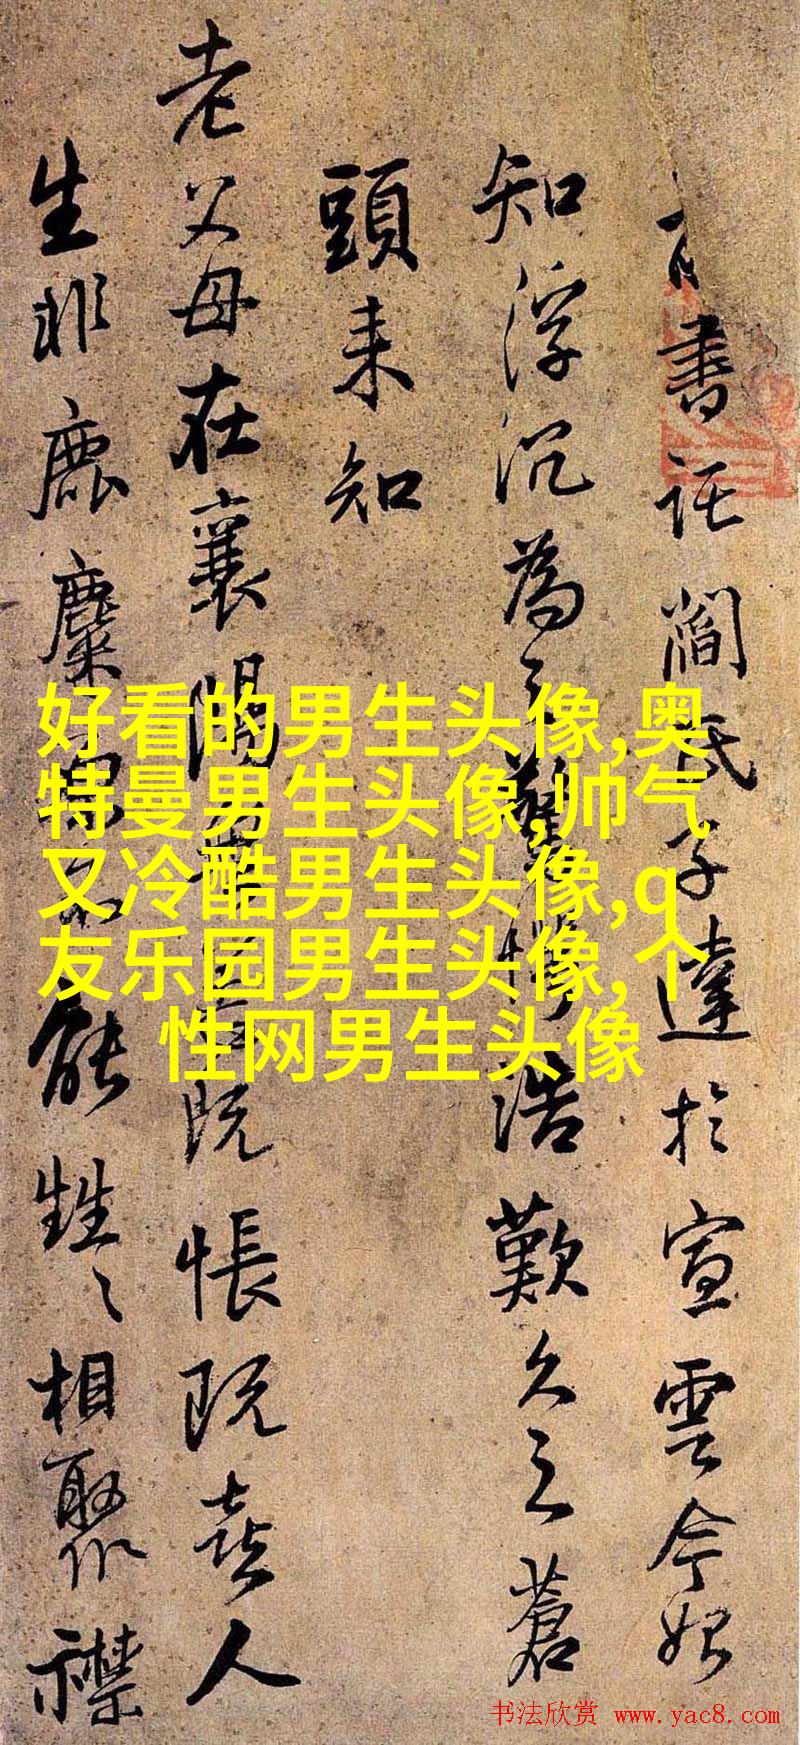 書託閻氏子達於宣雲今始
知浮沉為之驚浩歎久之蒼
頭来知
老父母在襄陽既悵既喜人
生非鹿麋能甡々相聚襟
好看的男生头像,奥
特曼男生头像,帅气
又冷酷男生头像,q
友乐园男生头像,个
性网男生头像
书法欣赏 www.yac8.com